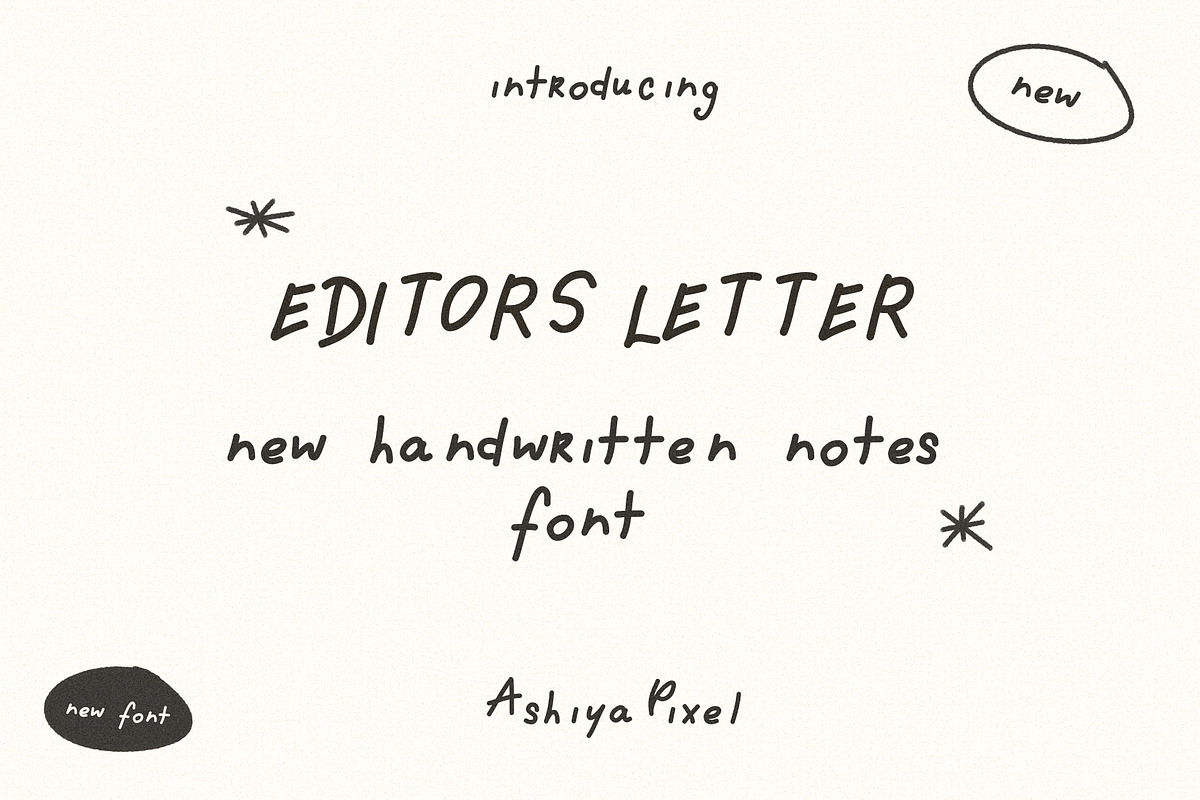 introducing
new
EDITORS LETTER
new handwritten notes
font
new font
Ashiya Pixel